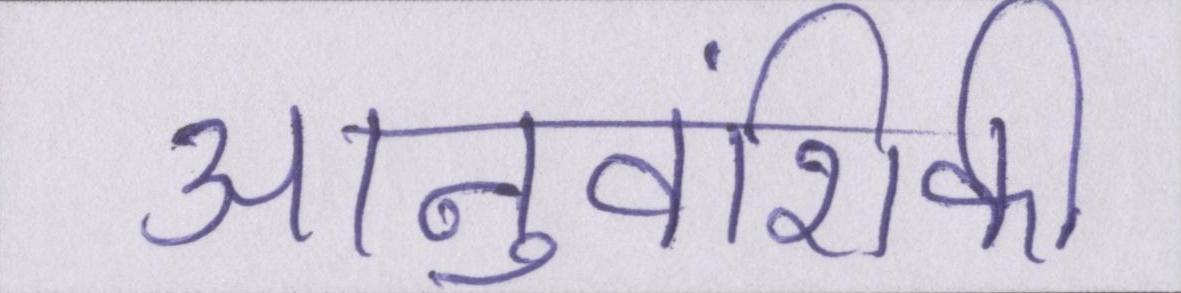 आनुवांशिकी